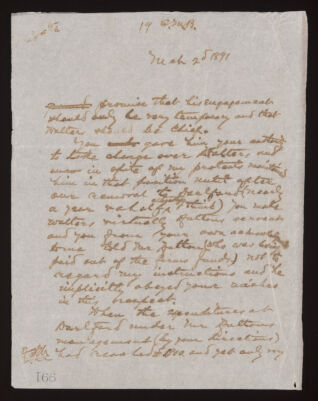 19
Mch 2d 1891
promise that his engagement
should only be very temporary and that
Walter should be Chief.
You gave him your authority
to take charge over Walter, and
in spite of my protests
him in that position until after
our removal to Dartford (nearly
a year & a half I think) You made
Walter virtually Huttons servant
and you from your own
to me told Mr Hutton (who was being
paid out of the firms funds) not to
regard my instructions and he
implicitly obeyed your wishes
in this respect.
When the expenditures at
Dartford under Mr Huttons
management (by your directions)
had reached and yet only my
166